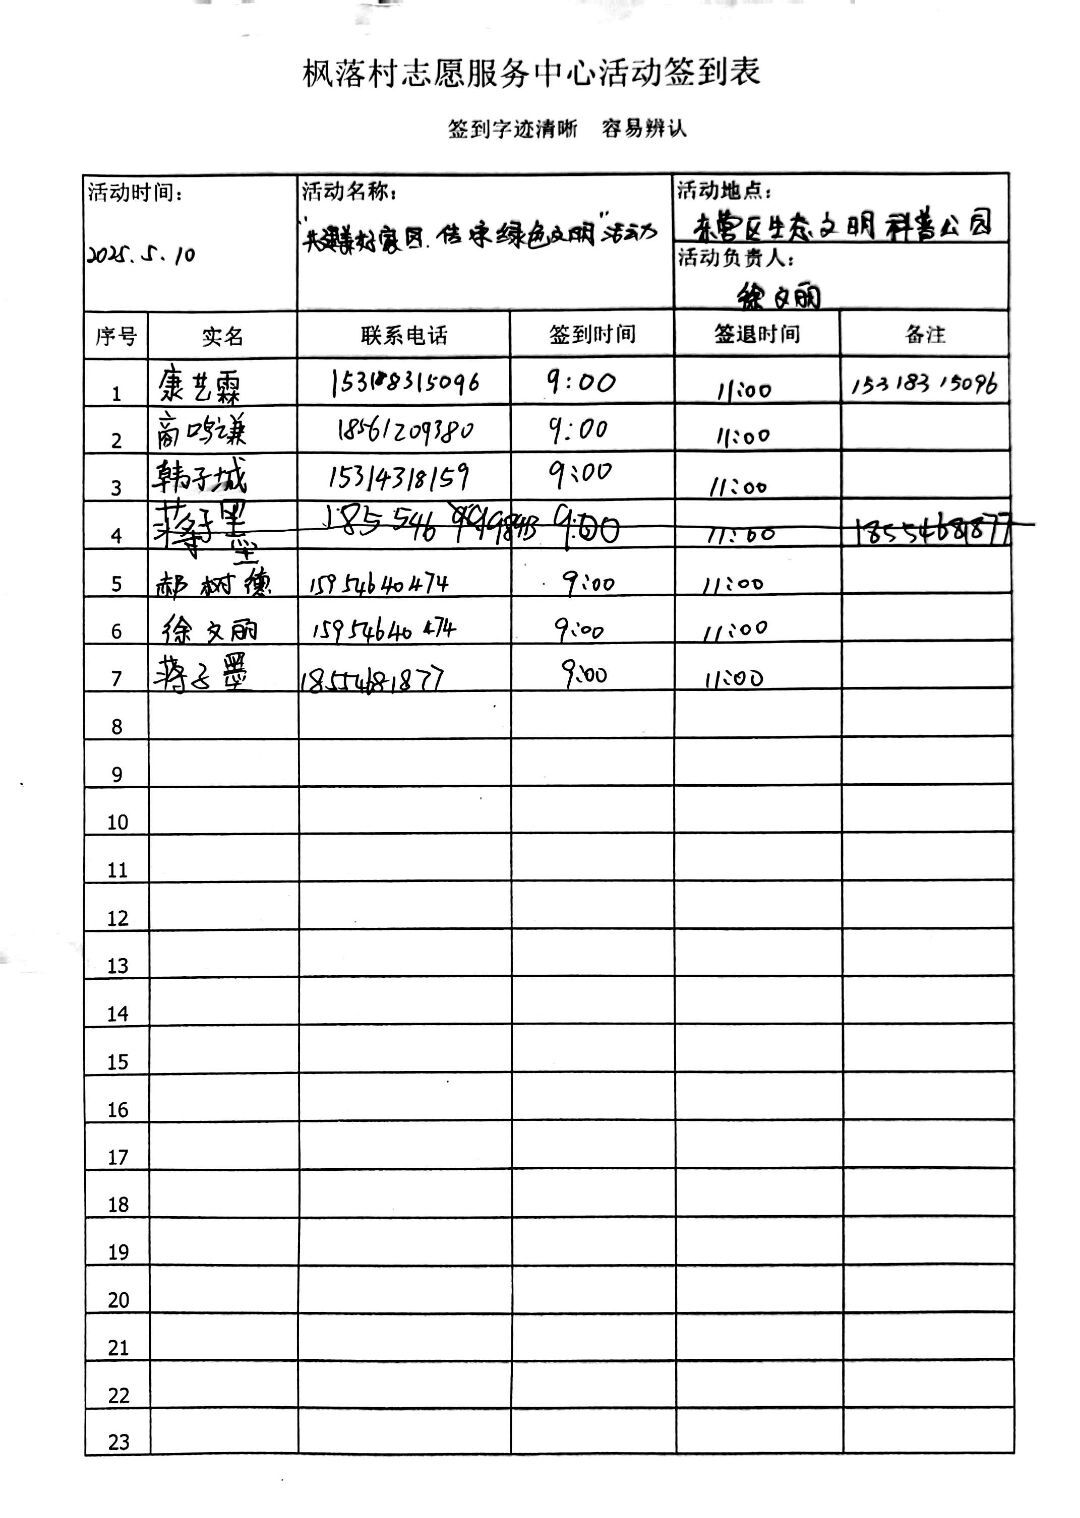 枫落村志愿服务中心活动签到表
签到字迹清晰 容易辨认
活动时间： 活动名称： 活动地点：
2025.5.10 "共建美好家园.传承绿色文明"活动 东营区生态文明科普公园
活动负责人：
徐文丽
序号 实名 联系电话 签到时间 签退时间 备注
1 康艺霖 153188315096 9:00 11:00 15318315096
2 高鸣谦 18561209380 9:00 11:00
3 韩子城 15314318159 9:00 11:00
4 蒋子墨 185546 9:00 11:00 18554681877
5 郝树德 15954640474 9:00 11:00
6 徐文丽 15954640474 9:00 11:00
7 蒋子墨 18554681877 9:00 11:00
8
9
10
11
12
13
14
15
16
17
18
19
20
21
22
23